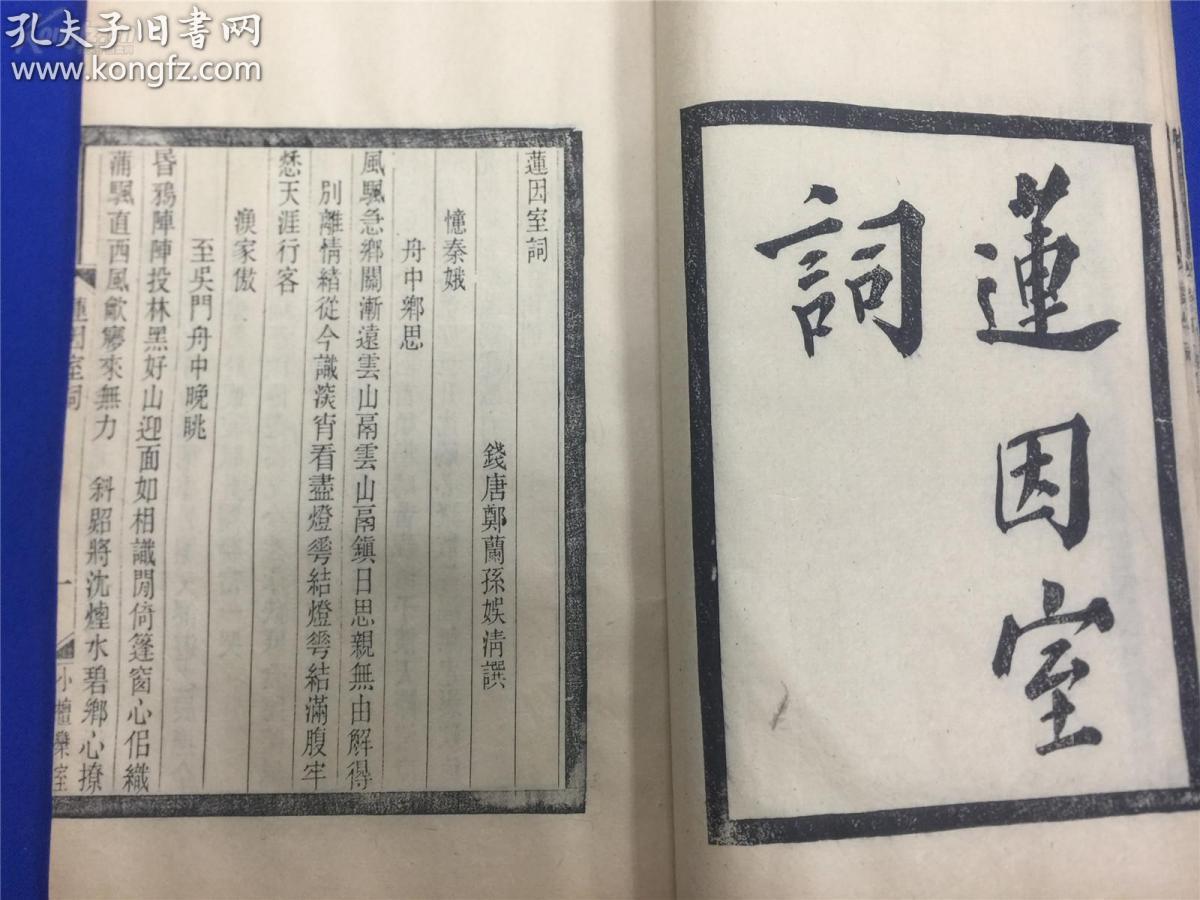 孔夫子旧书网
www.kongfz.com
蓮因室
詞
蓮因室詞
錢唐鄭蘭孫娱清譔
憶秦娥
舟中鄉思
風颿急鄉關漸遠雲山鬲雲山鬲鎮日思親無由解得
別離情緒從今識深宵看盡燈㝹結燈㝹結滿腹牢
愁天涯行客
漁家傲
至吳門舟中晚眺
昏鴉陣陣投林黑好山迎面如相識閒倚篷窗心佀織
蒲颿直西風歈寢來無力 斜照將沈煙水碧鄉心撩
蓮因室詞
一
小檀欒室